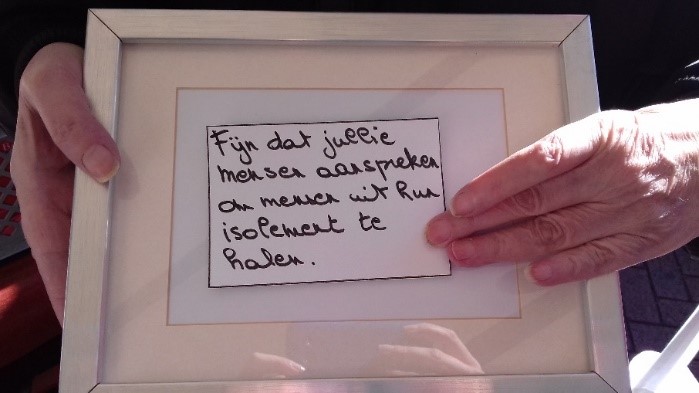 Fijn dat jullie
mensen aanspreken
om mensen uit hun
isolement te
halen.